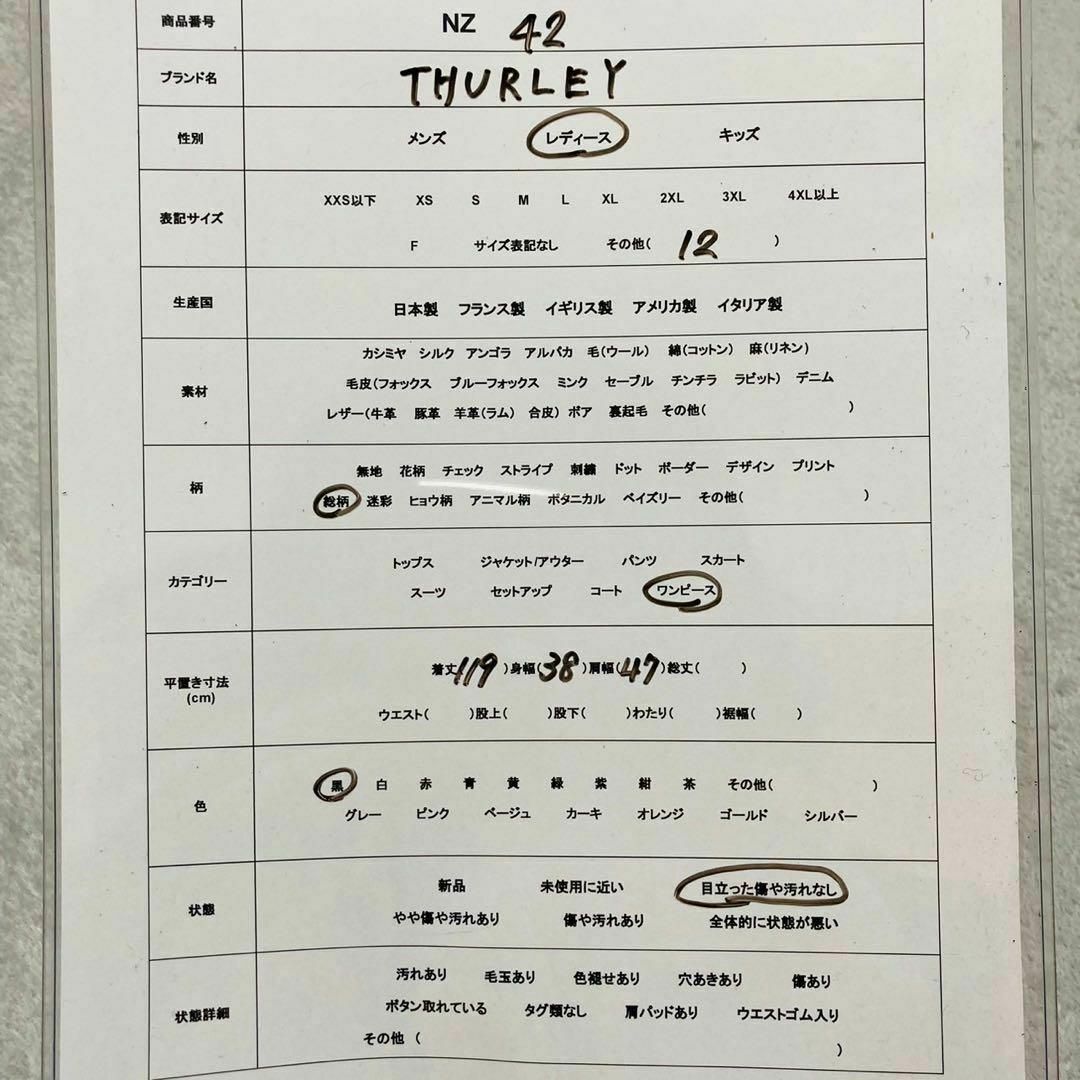 商品番号 NZ 42
ブランド名 THURLEY
性別 メンズ レディース キッズ
表記サイズ
XXS以下 XS S M L XL 2XL 3XL 4XL以上
F サイズ表記なし その他( 12 )
生産国 日本製 フランス製 イギリス製 アメリカ製 イタリア製
素材
カシミヤ シルク アンゴラ アルパカ 毛(ウール) 綿(コットン) 麻(リネン)
毛皮(フォックス ブルーフォックス ミンク セーブル チンチラ ラビット) デニム
レザー(牛革 豚革 羊革(ラム) 合皮) ボア 裏起毛 その他( )
柄
無地 花柄 チェック ストライプ 刺繍 ドット ボーダー デザイン プリント
総柄 迷彩 ヒョウ柄 アニマル柄 ボタニカル ペイズリー その他( )
カテゴリー
トップス ジャケット/アウター パンツ スカート
スーツ セットアップ コート ワンピース
平置き寸法
(cm)
着丈(119)身幅(38)肩幅(47)総丈( )
ウエスト( )股上( )股下( )わたり( )裾幅( )
色
黒 白 赤 青 黄 緑 紫 紺 茶 その他( )
グレー ピンク ベージュ カーキ オレンジ ゴールド シルバー
状態
新品 未使用に近い 目立った傷や汚れなし
やや傷や汚れあり 傷や汚れあり 全体的に状態が悪い
状態詳細
汚れあり 毛玉あり 色褪せあり 穴あきあり 傷あり
ボタン取れている タグ類なし 肩パッドあり ウエストゴム入り
その他 ( )